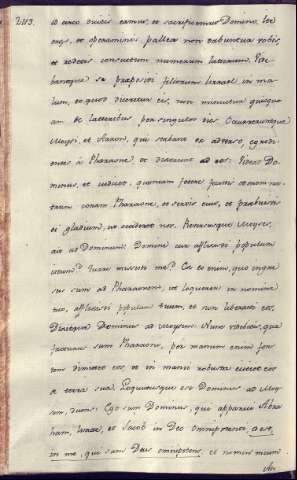 203.
ad circo dicitis eamus, et sacrificemus Domino, Ite
ergo, et operamini; pallea non dabuntur vobis,
et reddetis consuetum numerum laterum. Vide
bantque se prepositi filiorum Israel in ma
lum, eo quod diceretur eis, non minuetur quicqu
am de lateribus per singulos dies. Occurreruntque
Moysi, et Aaron, qui stabant ex adverso, egredi
entes a Pharaone, et dixerunt ad eos: Videat Do
minus, et iudicet, quoniam fetere fecistis odorem nos
trum coram Pharaone, et servis eius, et prebuistis
ei gladium, ut occideret nos. Reversusque Moyses,
ait ad Dominum: Domine cur afflixisti populum
istum? quare misisti me? Ex eo enim, quo ingres
sus sum ad Pharaonem, ut loquerer in nomine
tuo, afflixisti populum tuum, et non liberasti eos.
Dixitque Dominus ad Moysem: Nunc videbis, que
facturus sum Pharaoni, per manum enim for
tem dimittet eos, et in manu robusta eiiciet eos
de terra sua. Loquutusque est Dominus ad Moy
sem, dicens: Ego sum Dominus, que apparui Abra
ham, Isaac, et Jacob in Deo omnipotente, a est,
in me, qui sum Deus omnipotens, et nomen meum